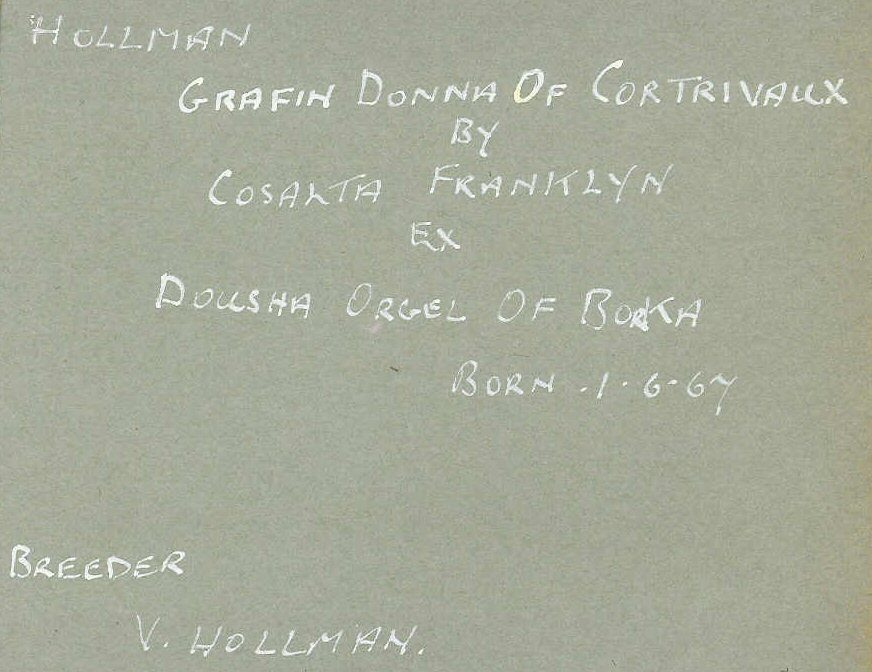 HOLLMAN
GRAFIN DONNA OF CORTRIVAUX
BY
COSALTA FRANKLYN
EX
DOUSHA ORGEL OF BORKA
BORN .1.6.67
BREEDER
V. HOLLMAN.